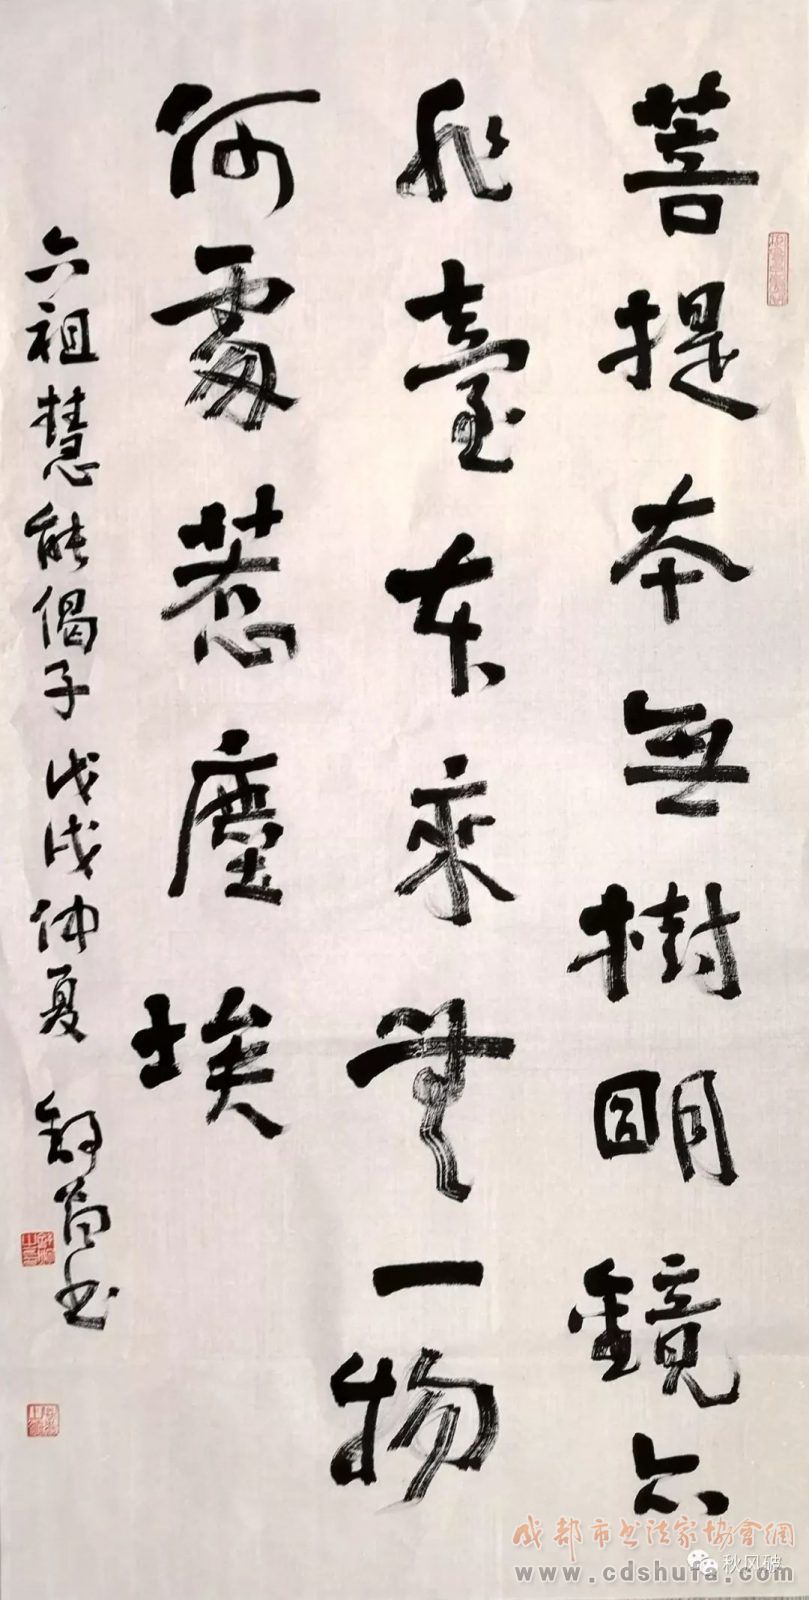 菩提本無樹明鏡亦
非臺本來無一物
何處惹塵埃
六祖慧能偈子戊戌仲夏 舒 书
成都市书法家协會網
秋风破
www.cdshufa.com